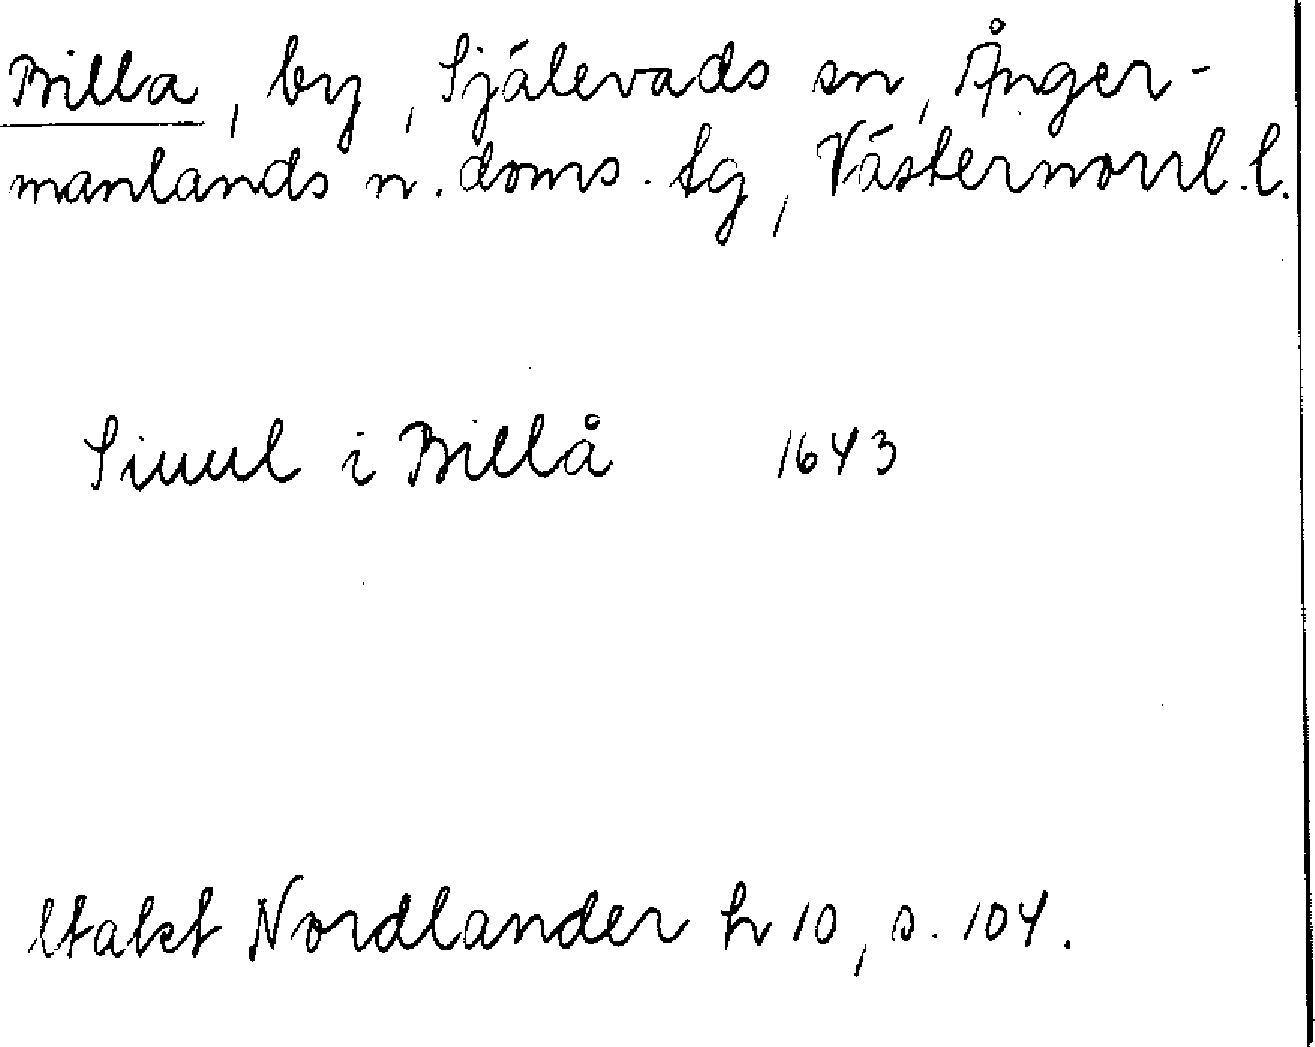 Billa, by, Själevads sn, Ånger-
manlands n. doms. tg, Västernorrl. l.
i Billå 1643
Nordlander h 10, s. 104.